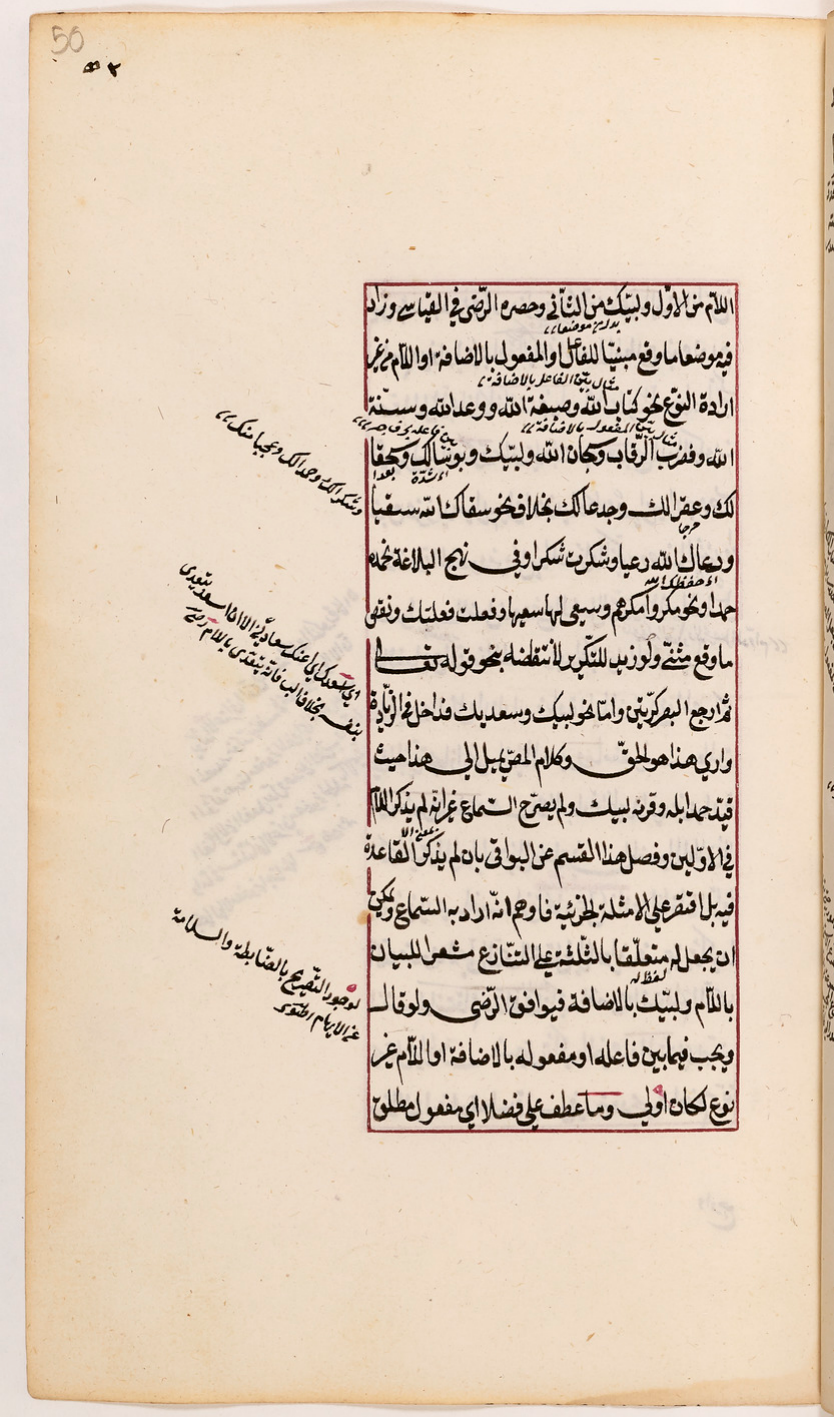 50
اللام من الاول ولبيك من الثاني وحصره الرضى في القياسي وزاد
بدل من موضعا
فيه موضعا ما وقع مبنيا للفاعل او المفعول بالاضافة او اللام من غير
مثال بيان الفاعل بالاضافة
ارادة النوع نحو كتاب الله وصبغة الله ووعد الله وسنة
مثال بيان المفعول بالاضافة
الله وفضرب الرقاب وسبحان الله ولبيك وبؤسا لك وسحقا
اى شدة بعدا
لك وعقرا لك وجدعا لك بخلاف نحو سقاك الله سقيا
ورعاك الله رعيا وشكرت شكرا وفى نهج البلاغة نحمده
اى حفظك الله
حمدا ونحو مكروا مكرهم وسعى لها سعيها وفعلت فعلتك ونفى
ما وقع مثنى ولو زيد للتكرير لانتقضه بنحو قوله تعالى
ثم ارجع البصر كرتين واما نحو لبيك وسعديك فداخل فى الزيادة
وارى هذا هو الحق وكلام المص يميل الى هذا حيث
قيد حمدا بله وقرنه لبيك ولم يصرح السماع غير انه لم يذكر اللام
فى الاولين وفصل هذا القسم عن البواقى بان لم يذكر القاعدة
فيه بل اقتصر على الامثلة الجزئية فاوهم انه اراد به السماع ويمكن
ان يجعل له متعلقا بالثلثة على التنازع مشعرا للبيان
لفظ له
باللام ولبيك بالاضافة فيوافق الرضى ولو قال
ويجب فيما بين فاعله او مفعوله بالاضافة او اللام غير
نوع لكان اولى وما عطف على فضلا اى مفعول مطلق
وشكرا لك وحمدا لك وعجبا منك
اى اسعدك اى اعنك سعادية الا ان اسعد يتعدى
بنفسه بخلاف الب فانه يتعدى باللام رضى
لوجود التصريح بالضابطة والسلامة
عن الابهام المذكور